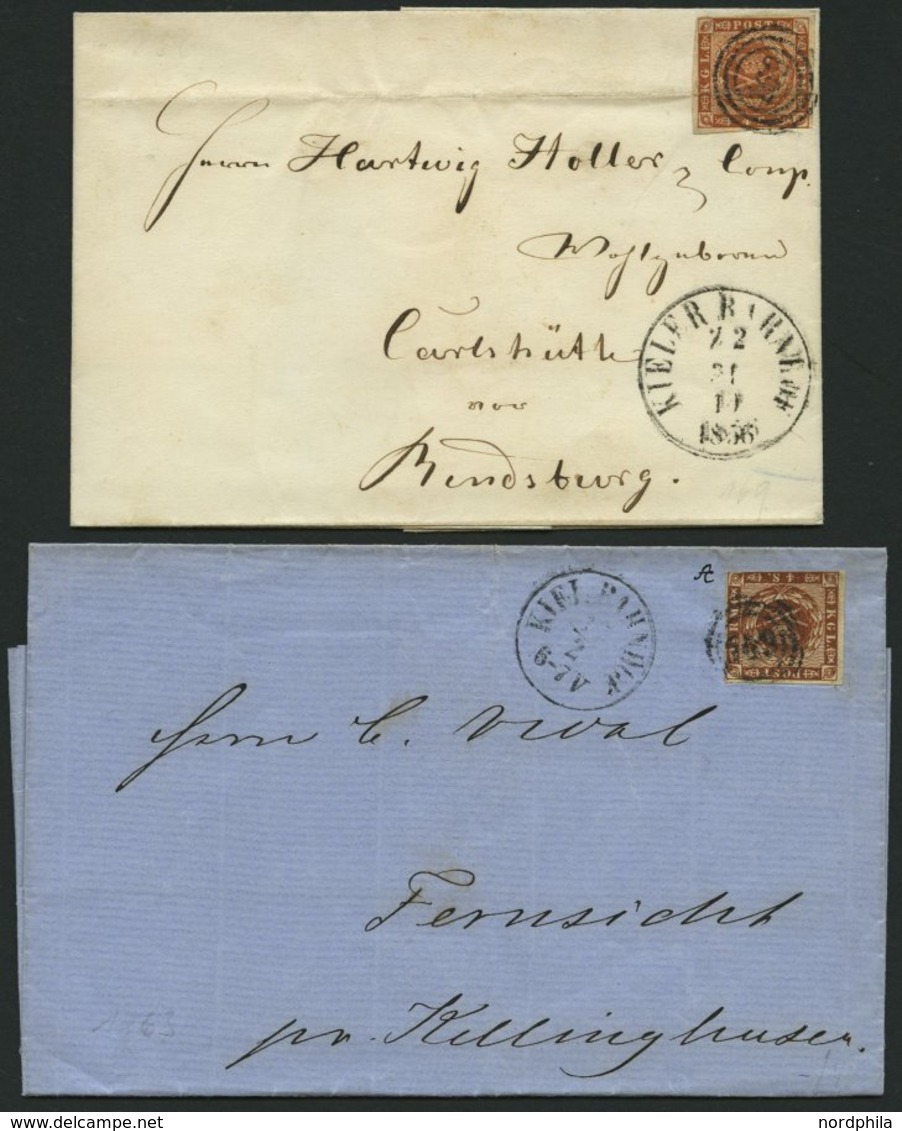 POST
K.G.L.
Herrn Hartwig Holler & Comp.
Wohlgeboren
Carlshütte
vor
Rendsburg.
KIELER BAHNHOF
Z 2
31
10
1856
169
A
KIEL BAHNHOF
2
6-7 N
S 4 S.
K.G.L.
POST
169
Herrn C. Vival
Fernsicht
pr. Kellinghusen.
1863
nordphila